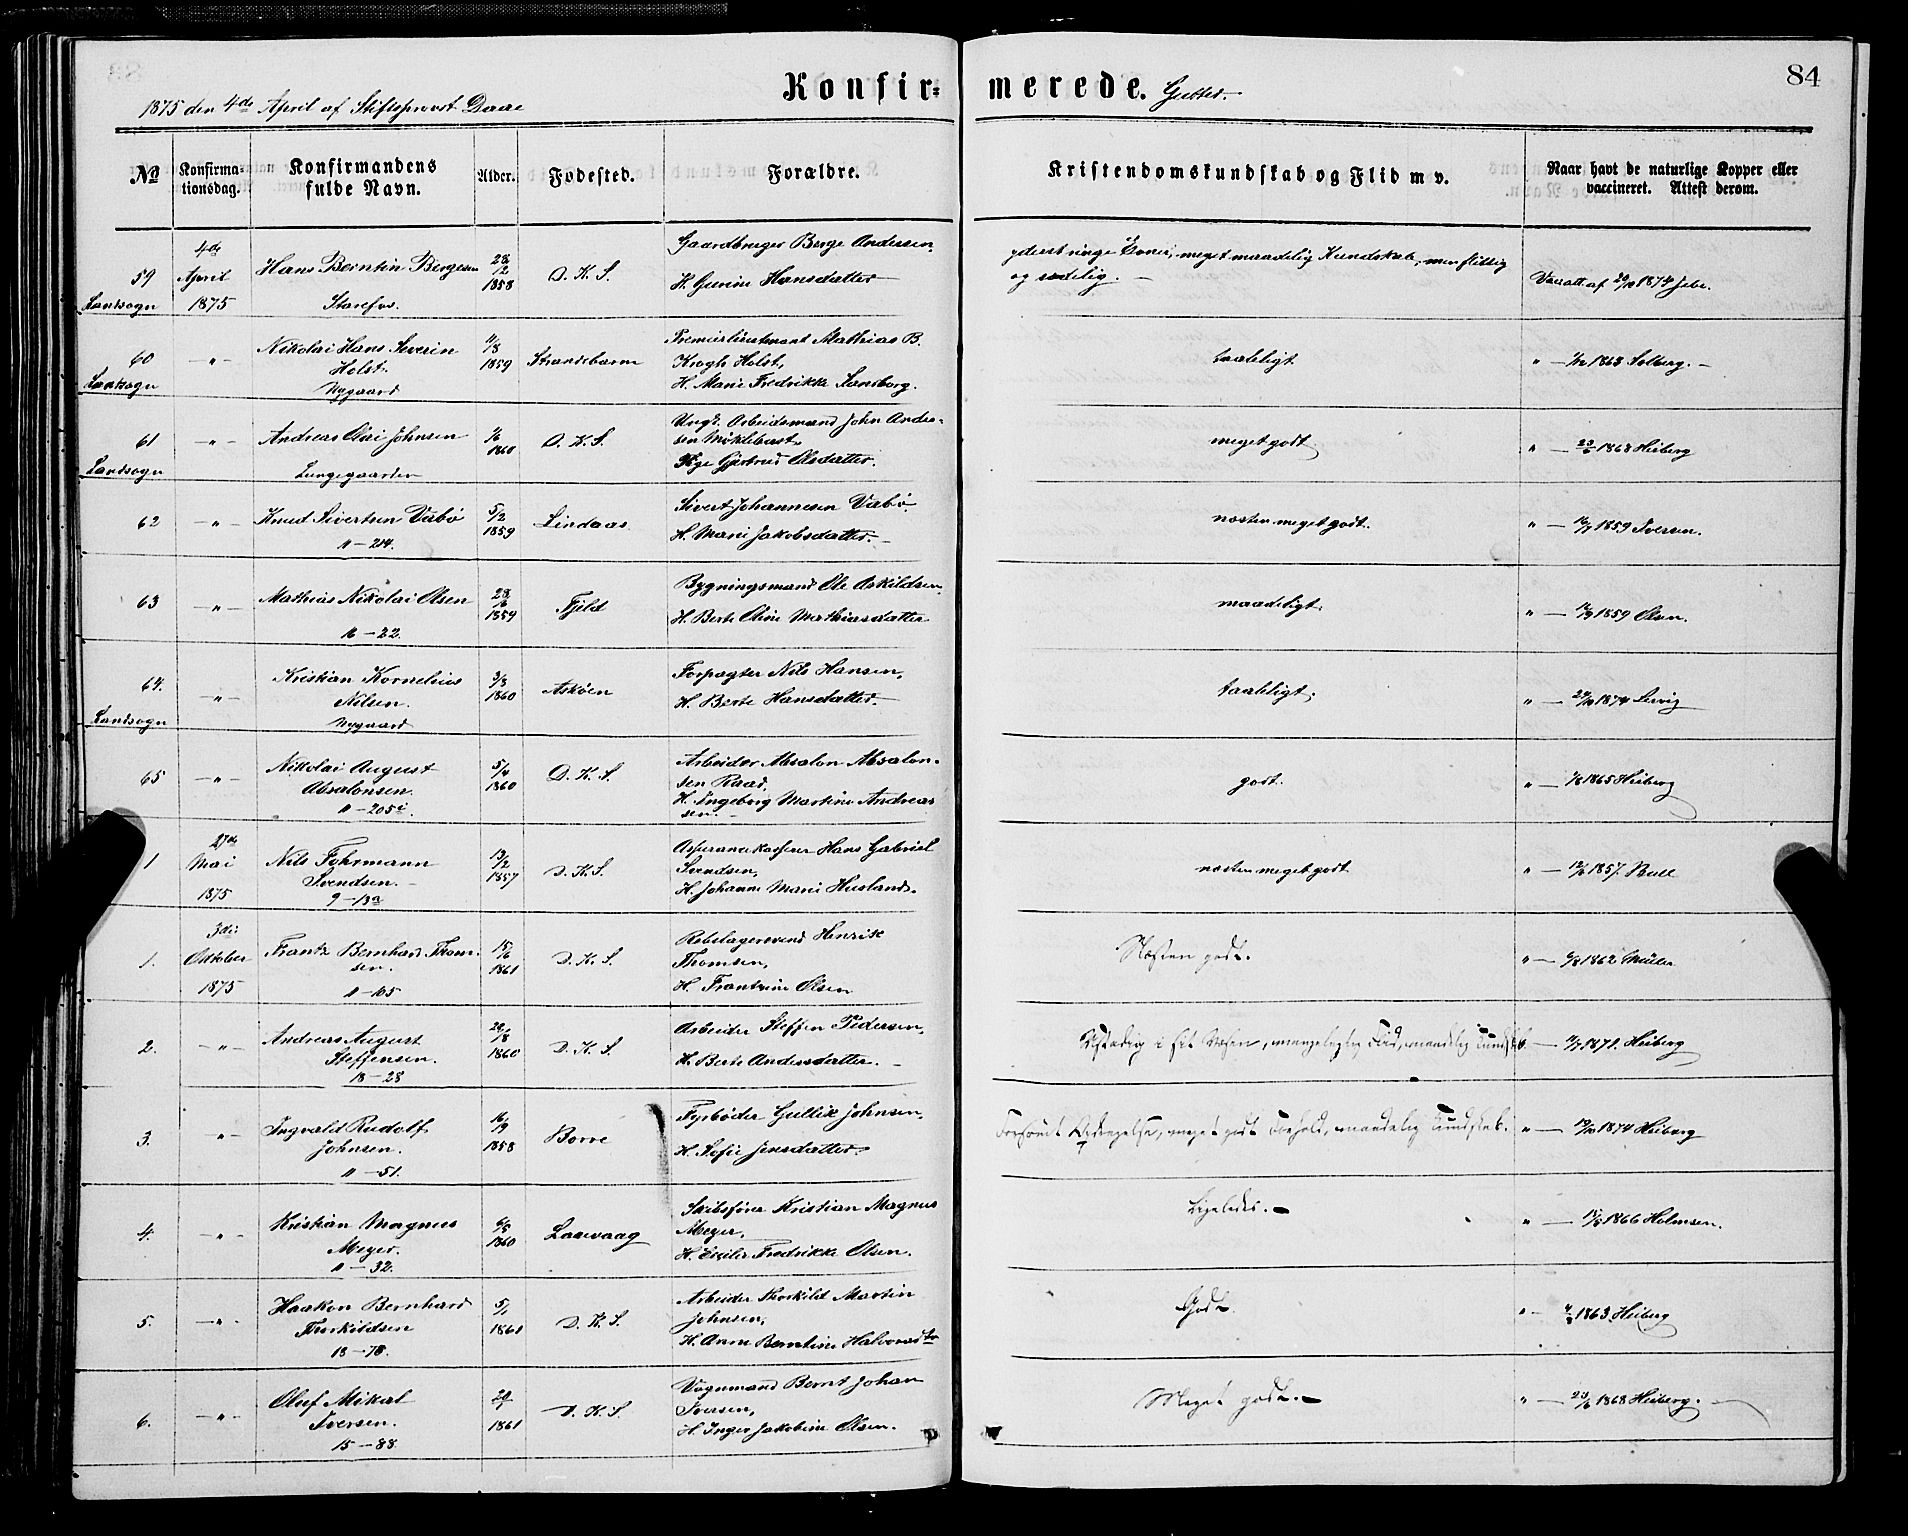 84
Konfirmerede. Gutter.
1875 den 4de April af Stiftsprovst Daae
No
Konfirmationsdag.
Konfirmandens fulde Navn.
Alder.
Fødested.
Forældre.
Kristendomskundskab og Flid m v.
Naar havt de naturlige Kopper eller vaccineret. Attest derom.
59
Landsogn
4de April 1875
Hans Berntin Bergesen
28/2 1858
D. K. S.
Gaardbruger Berge Andersen,
H. Gurine Hansdatter
yderst ringe Evner, meget maadelig Kundskab, men flittig
og sædelig.
Vac. att. af 1874
60
Landsogn
Nikolai Hans Severin
Holst.
Nygaard
1859
Strandebarm
Premierlieutenant Mathias B.
Krogh Holst,
H. Marie Fredrikke Sandborg.
taaleligt
" — 1863 Solberg. —
61
Landsogn
Andreas Olai Johnsen
Lungegaarden
1860
D. K. S.
Ungk. Arbeidsmand John Andersen Myklebust
Pige Gjertrud Olsdatter.
meget godt.
" — 23/6 1868 Heiberg
62
Knud Sivertsen Vabø
11 — 214.
5/2 1859
Lindaas
Sivert Johannesen Vabø
H. Marie Jakobsdatter. —
næsten meget godt.
" — 1859 Iversen.
63
Mathias Nikolai Olsen
16 — 22.
1859
Fjeld
Bygningsmand Ole Askildsen,
H. Berte Oline Mathiasdatter
maadeligt.
" — 1859 Olsen.
64.
Landsogn
Kristian Kornelius
Nilsen.
Nygaard
3/3 1860
Askøen
Forpagter Nils Hansen,
H. Berte Hansdatter.
taaleligt.
" — 1874 Lervig
65
Nikolai August
Absalonsen.
11 — 205i
5/4 1860
D. K. S.
Arbeider Absalon Absalonsen Raad,
H. Ingeborg Martine Andreassen. —
godt.
" — 1865 Heiberg
1
27de Mai 1875
Nils Fohrmann
Svendsen. —
9 — 13a
13/2 1857
D. K. S.
Assurancekasserer Hans Gabriel
Svendsen,
H. Johanne Marie Husland.
næsten meget godt
" — 1857. Bull
1.
3die Oktober 1875
Frantz Bernhard Thomsen.
11 — 105
15/6 1861
D. K. S.
Rebslagersvend Henrik
Thomsen,
H. Frantzine Olsen
Næsten godt.
" — 1862 Müller
2.
Andreas August
Steffensen.
18 — 28
1860
D. K. S.
Arbeider Steffen Pedersen,
H. Berte Andersdatter. —
Ustadig i sit Væsen, mangelagtig Flid, maadelig Kundskab
— 1871. Heiberg
3.
Ingvald Rudolf
Johnsen.
11 — 51.
16/9 1858
Borre
Fyrbøder Gullik Johnsen,
H. Sofie Jensdatter.
Forsømt Opdragelse, meget godt Forhold, maadelig Kundskab.
" — 1874 Heiberg
4.
Kristian Magnus
Meyer.
11 — 32.
1860
Laxevaag
Skibsfører Kristian Magnus
Meyer,
H. Fredrikke Olsen.
Ligeledes. —
" — 1866 Holmsen.
5.
Haakon Bernhard
Thorkildsen
18 — 78.
5/1 1861
D. K. S.
Arbeider Thorkild Martin
Johnsen,
H. Anne Berntine Halvorsdtr
Godt.
" — 1863 Heiberg
6.
Oluf Mikal
Iversen.
15 — 88
1861
D. K. S.
Vognmand Bernt Johan
Iversen,
H. Inger Jakobine Olsen.
Meget godt. —
" — 23/6 1868 Heiberg. —